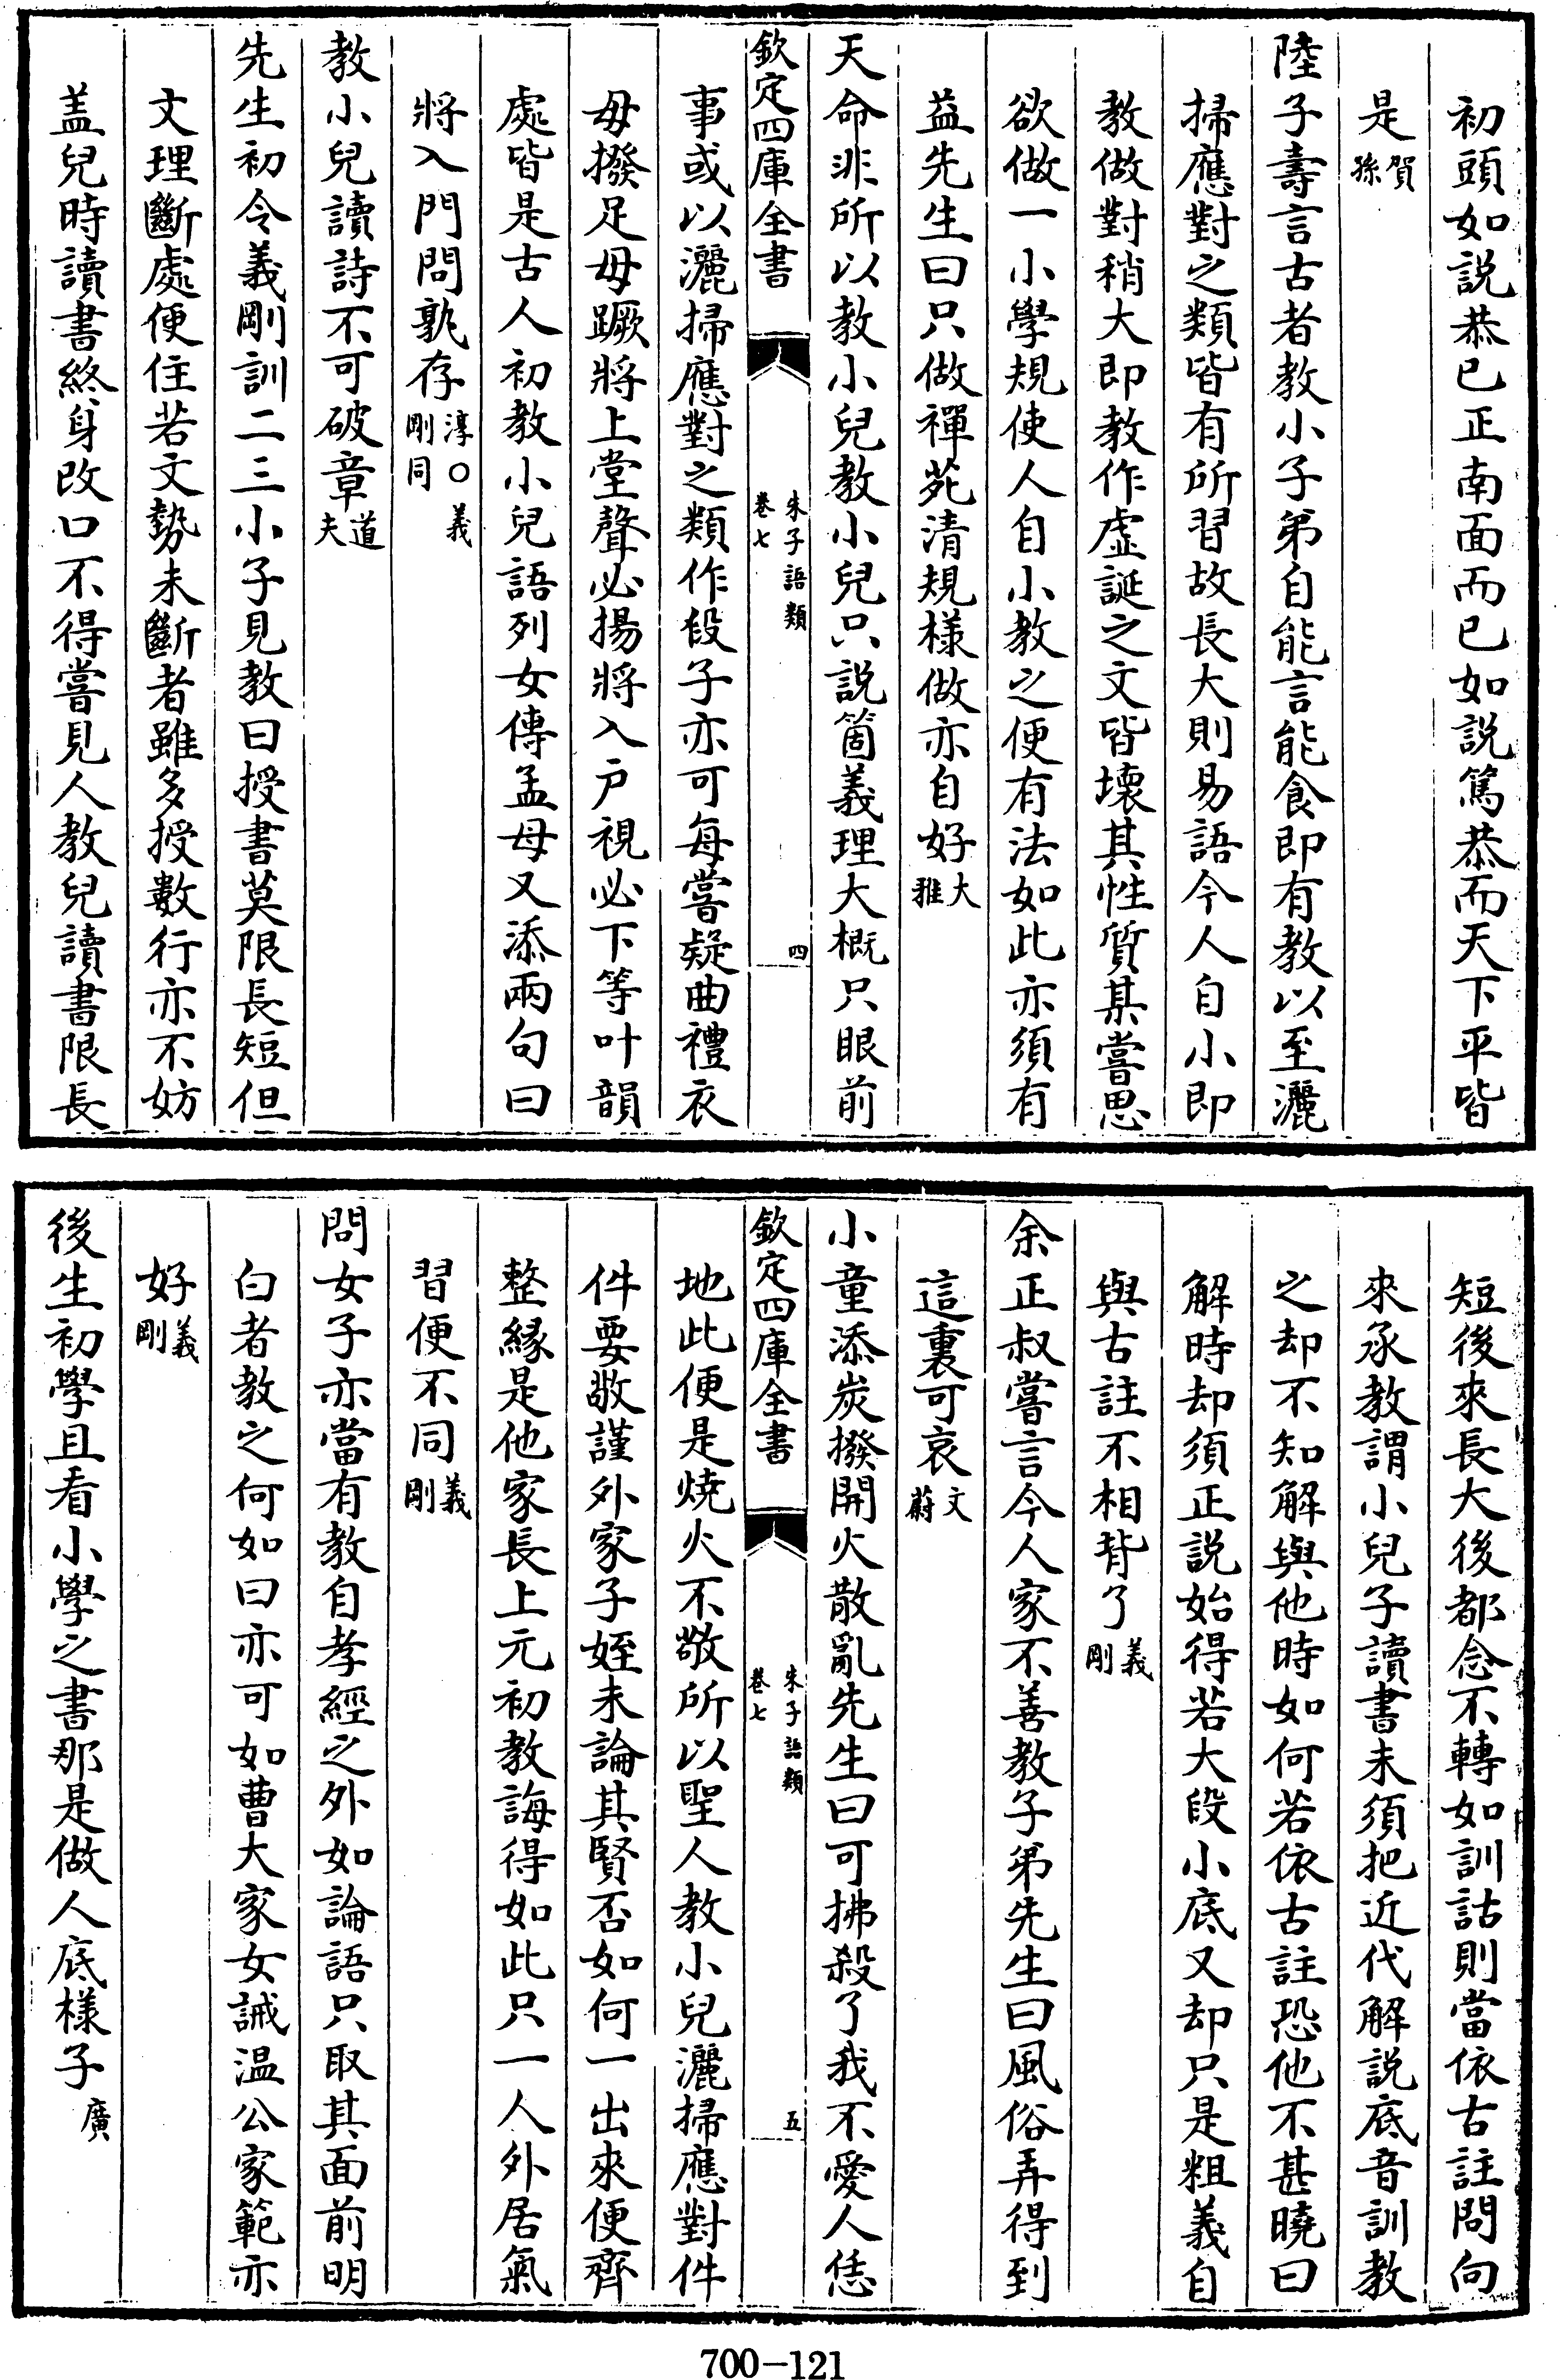 初頭如説恭已正南面而已如説篤恭而天下平皆
是賀孫
陸子壽言古者教小子弟自能言能食即有教以至灑
掃應對之類皆有所習故長大則易語今人自小即
教做對稍大即教作虛誕之文皆壞其性質某嘗思
欲做一小學規使人自小教之便有法如此亦須有
益先生曰只做禪苑清規様做亦自好大雅
天命非所以教小兒教小兒只説箇義理大概只眼前
欽定四庫全書
朱子語類
卷七
四
事或以灑掃應對之類作段子亦可每嘗疑曲禮衣
毋撥足毋蹶將上堂聲必揚將入户視必下等叶韻
處皆是古人初教小兒語列女傳孟母又添兩句曰
將入門問孰存淳〇義剛同
教小兒讀詩不可破章道夫
先生初令義剛訓二三小子見教曰授書莫限長短但
文理斷處便住若文勢未斷者雖多授數行亦不妨
盖兒時讀書終身改口不得嘗見人教兒讀書限長
短後來長大後都念不轉如訓詁則當依古註問向
來承教謂小兒子讀書未須把近代解説底音訓教
之却不知解與他時如何若依古註恐他不甚曉曰
解時却須正説始得若大段小底又却只是粗義自
與古註不相背了義剛
余正叔嘗言今人家不善教子弟先生曰風俗弄得到
這裏可哀文蔚
小童添炭撥開火散亂先生曰可拂殺了我不愛人恁
欽定四庫全書
朱子語類
卷七
五
地此便是燒火不敬所以聖人教小兒灑掃應對件
件要敬謹外家子姪未論其賢否如何一出來便齊
整緣是他家長上元初教誨得如此只一人外居氣
習便不同義剛
問女子亦當有教自孝經之外如論語只取其面前明
白者教之何如曰亦可如曹大家女誡温公家範亦
好義剛
後生初學且看小學之書那是做人底様子廣
700-121